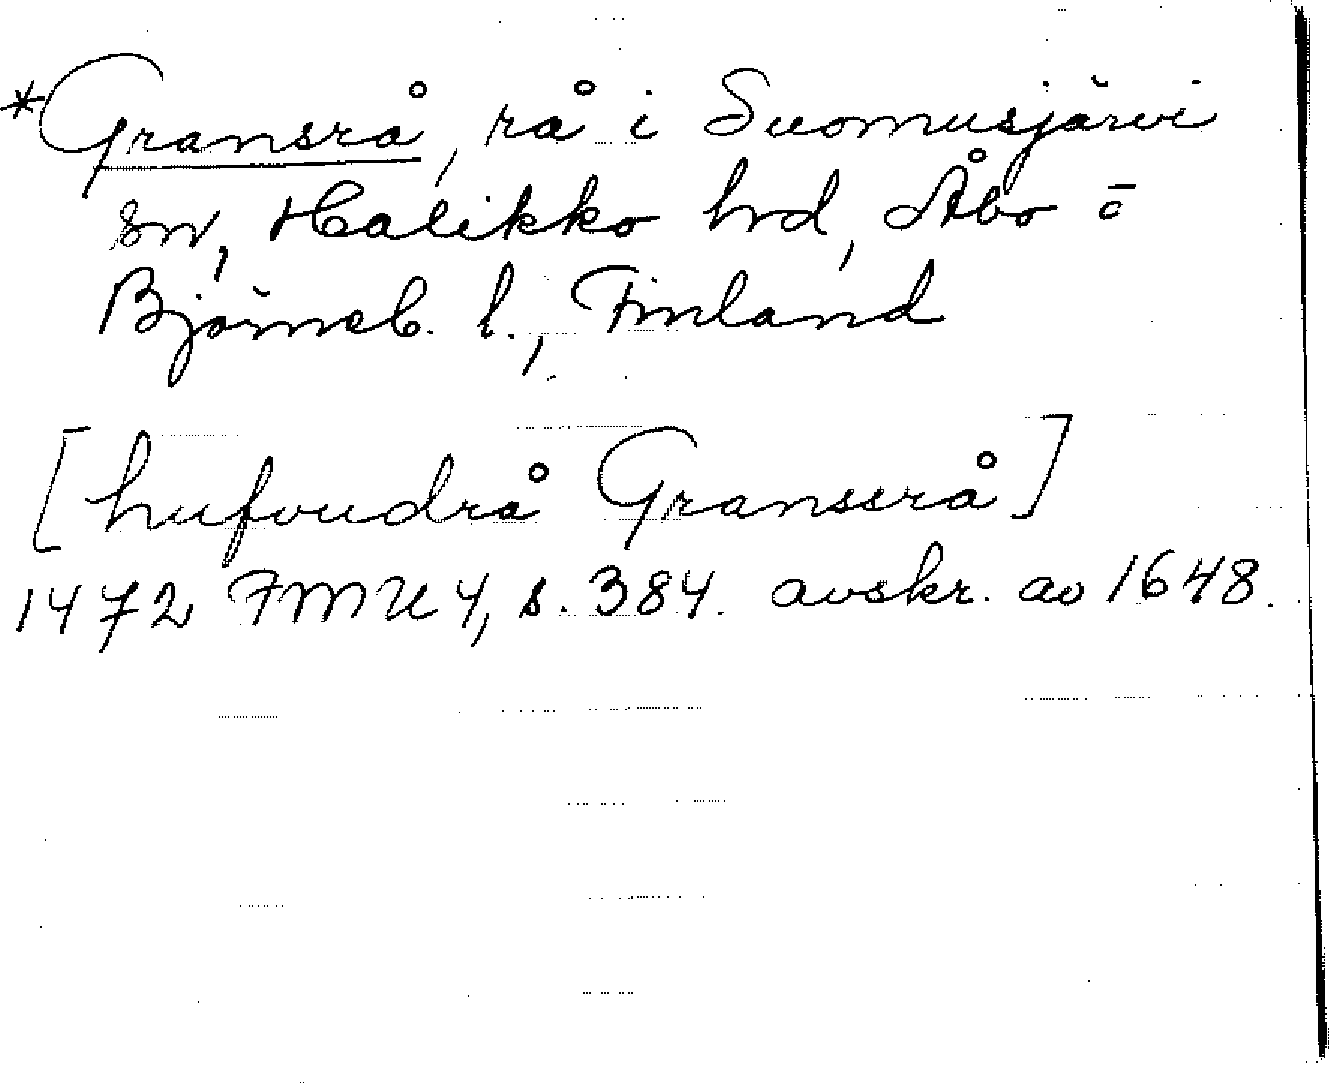 *Gransrå, rå i Suomusjärvi
sn, Halikko hrd, Åbo o
Björneb. l., Finland
[hufvudrå Granserå]
1472 FMU 4, s. 384. avskr. av 1648.